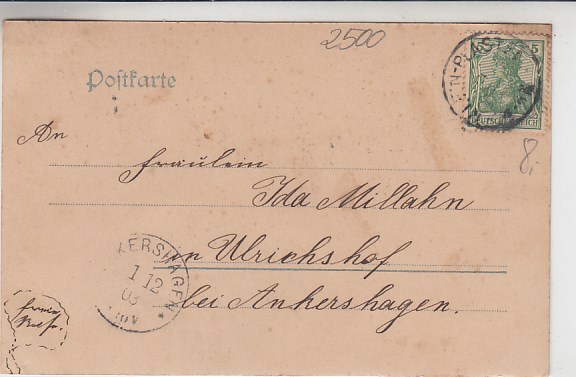 2500
Postkarte
5
DEUTSCHES REICH
8,
An
Fräulein
Ida Millahn
in Ulrichshof
bei Ankershagen.
KERSHAGEN
1 12
03